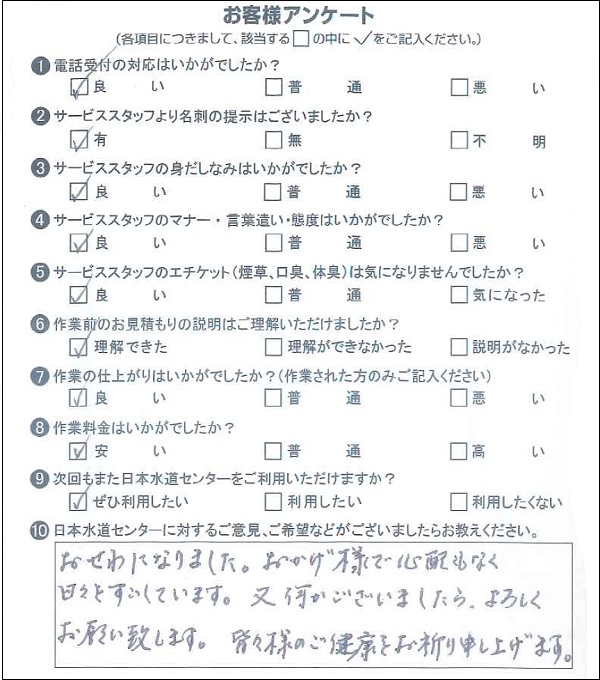 お客様アンケート
(各項目につきまして、該当する□の中に✓をご記入ください。)
❶ 電話受付の対応はいかがでしたか?
☑ 良い □ 普通 □ 悪い
❷ サービススタッフより名刺の提示はございましたか?
☑ 有 □ 無 □ 不明
❸ サービススタッフの身だしなみはいかがでしたか?
☑ 良い □ 普通 □ 悪い
❹ サービススタッフのマナー・言葉遣い・態度はいかがでしたか?
☑ 良い □ 普通 □ 悪い
❺ サービススタッフのエチケット(煙草、口臭、体臭)は気になりませんでしたか?
☑ 良い □ 普通 □ 気になった
❻ 作業前のお見積もりの説明はご理解いただけましたか?
☑ 理解できた □ 理解ができなかった □ 説明がなかった
❼ 作業の仕上がりはいかがでしたか?(作業された方のみご記入ください)
☑ 良い □ 普通 □ 悪い
❽ 作業料金はいかがでしたか?
☑ 安い □ 普通 □ 高い
❾ 次回もまた日本水道センターをご利用いただけますか?
☑ ぜひ利用したい □ 利用したい □ 利用したくない
❿ 日本水道センターに対するご意見、ご希望などがございましたらお教えください。
おせわになりました。おかげ様で心配もなく
日々をすごしています。又何かございましたら、よろしく
お願い致します。皆々様のご健康をお祈り申し上げます。